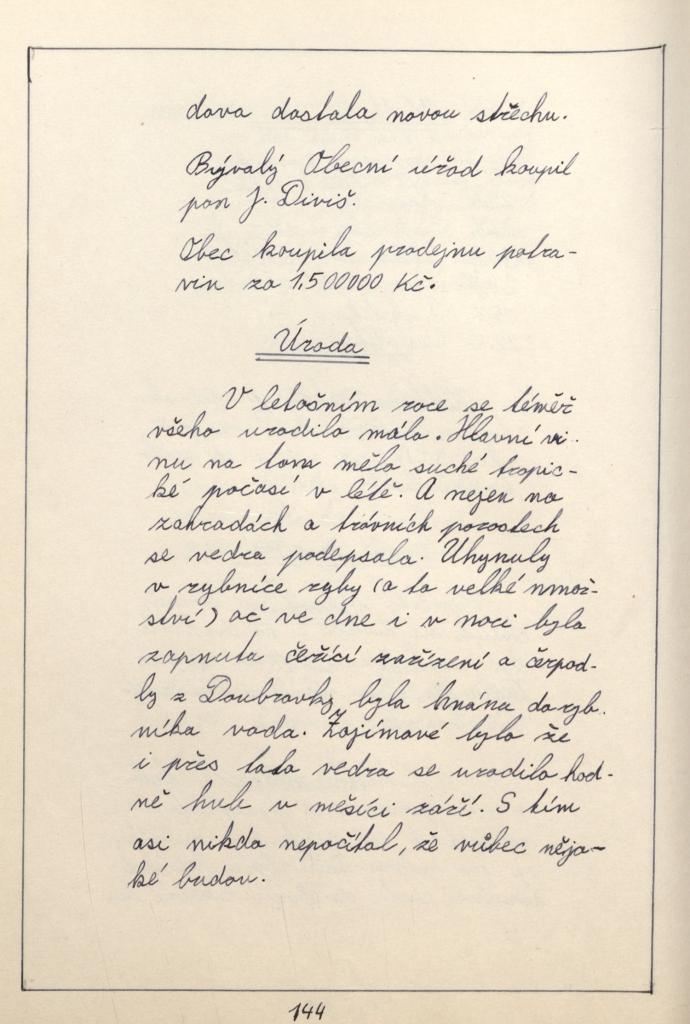 dova dostala novou střechu.
Bývalý Obecní úřad koupil
pan J. Diviš.
Obec koupila prodejnu potra-
vin za 1,500000 Kč.
Úroda
V letošním roce se téměř
všeho urodilo málo. Hlavní vi-
nu na tom mělo suché tropic-
ké počasí v létě. A nejen na
zahradách a trávních porostech
se vedra podepsala. Uhynuly
v rybnice ryby (a to velké nmož-
ství) ač ve dne i v noci byla
zapnuta čeřící zařízení a čerpad-
ly z Doubravky byla hnána do ryb.
níka voda. Zajímavé bylo že
i přes tato vedra se urodilo hod-
ně hub v měsíci září. S tím
asi nikdo nepočítal, že vůbec něja-
ké budou.
144